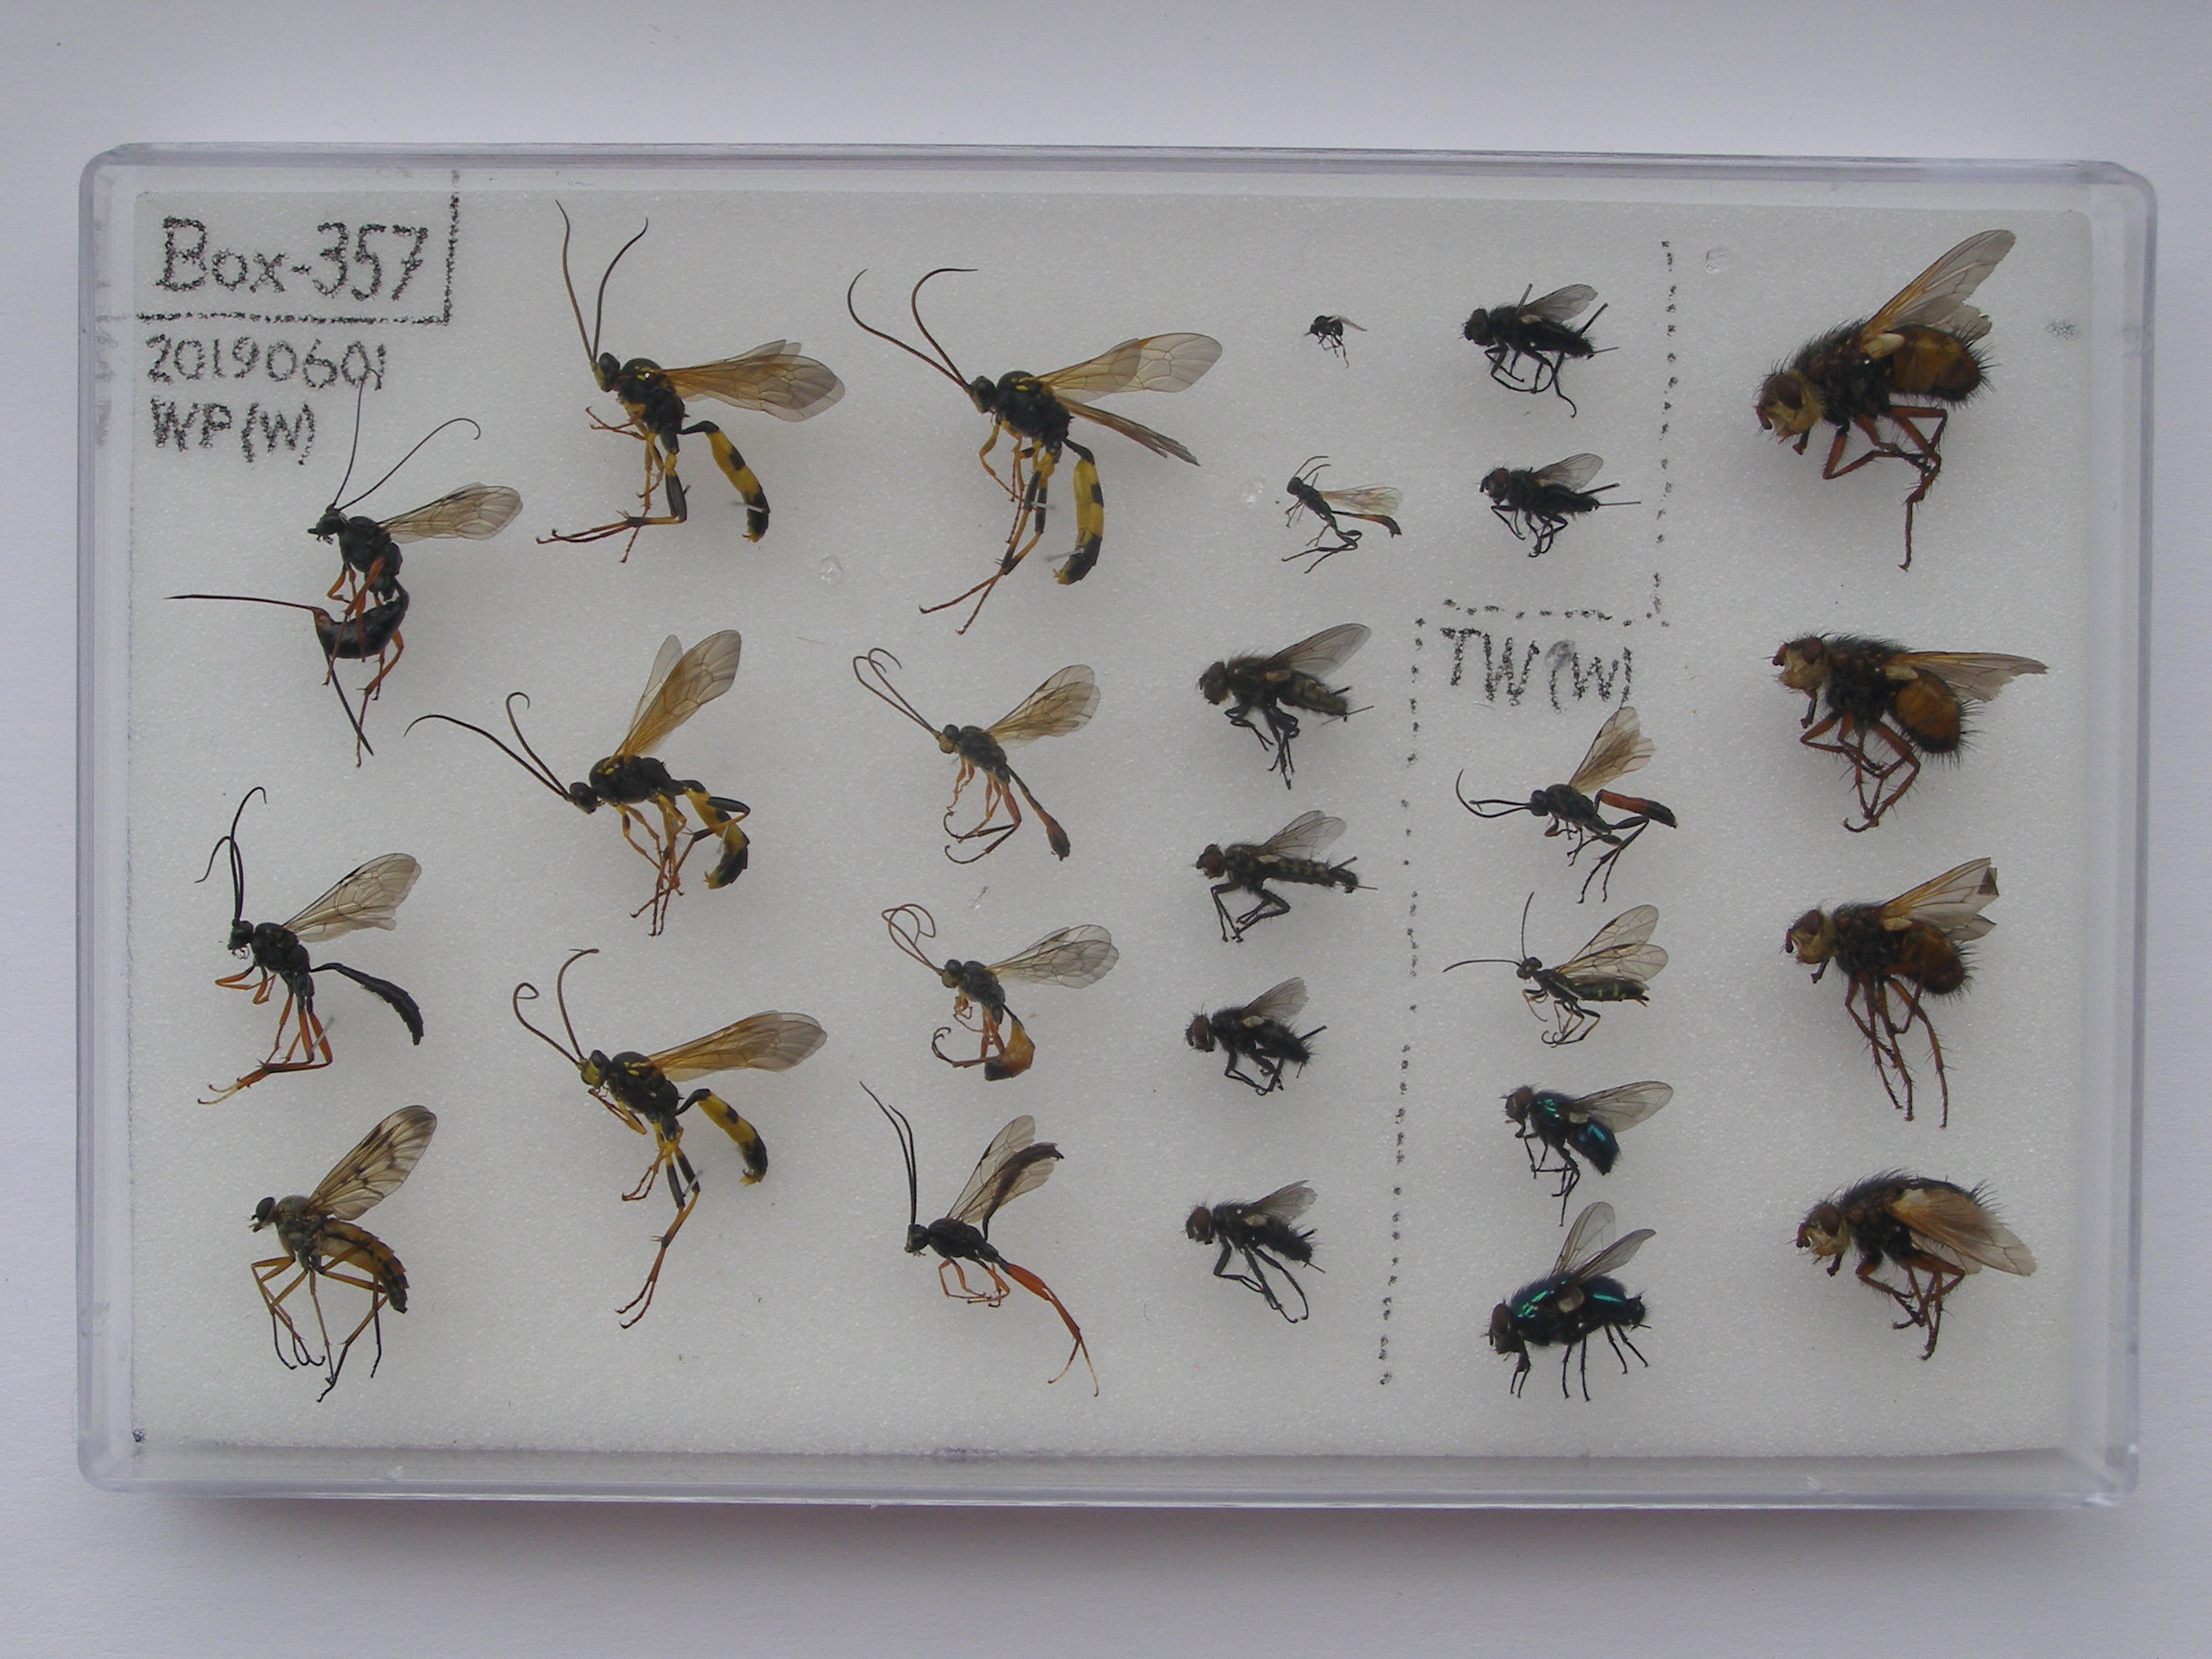 Box-357
20190601
WP(W)
TW(W)